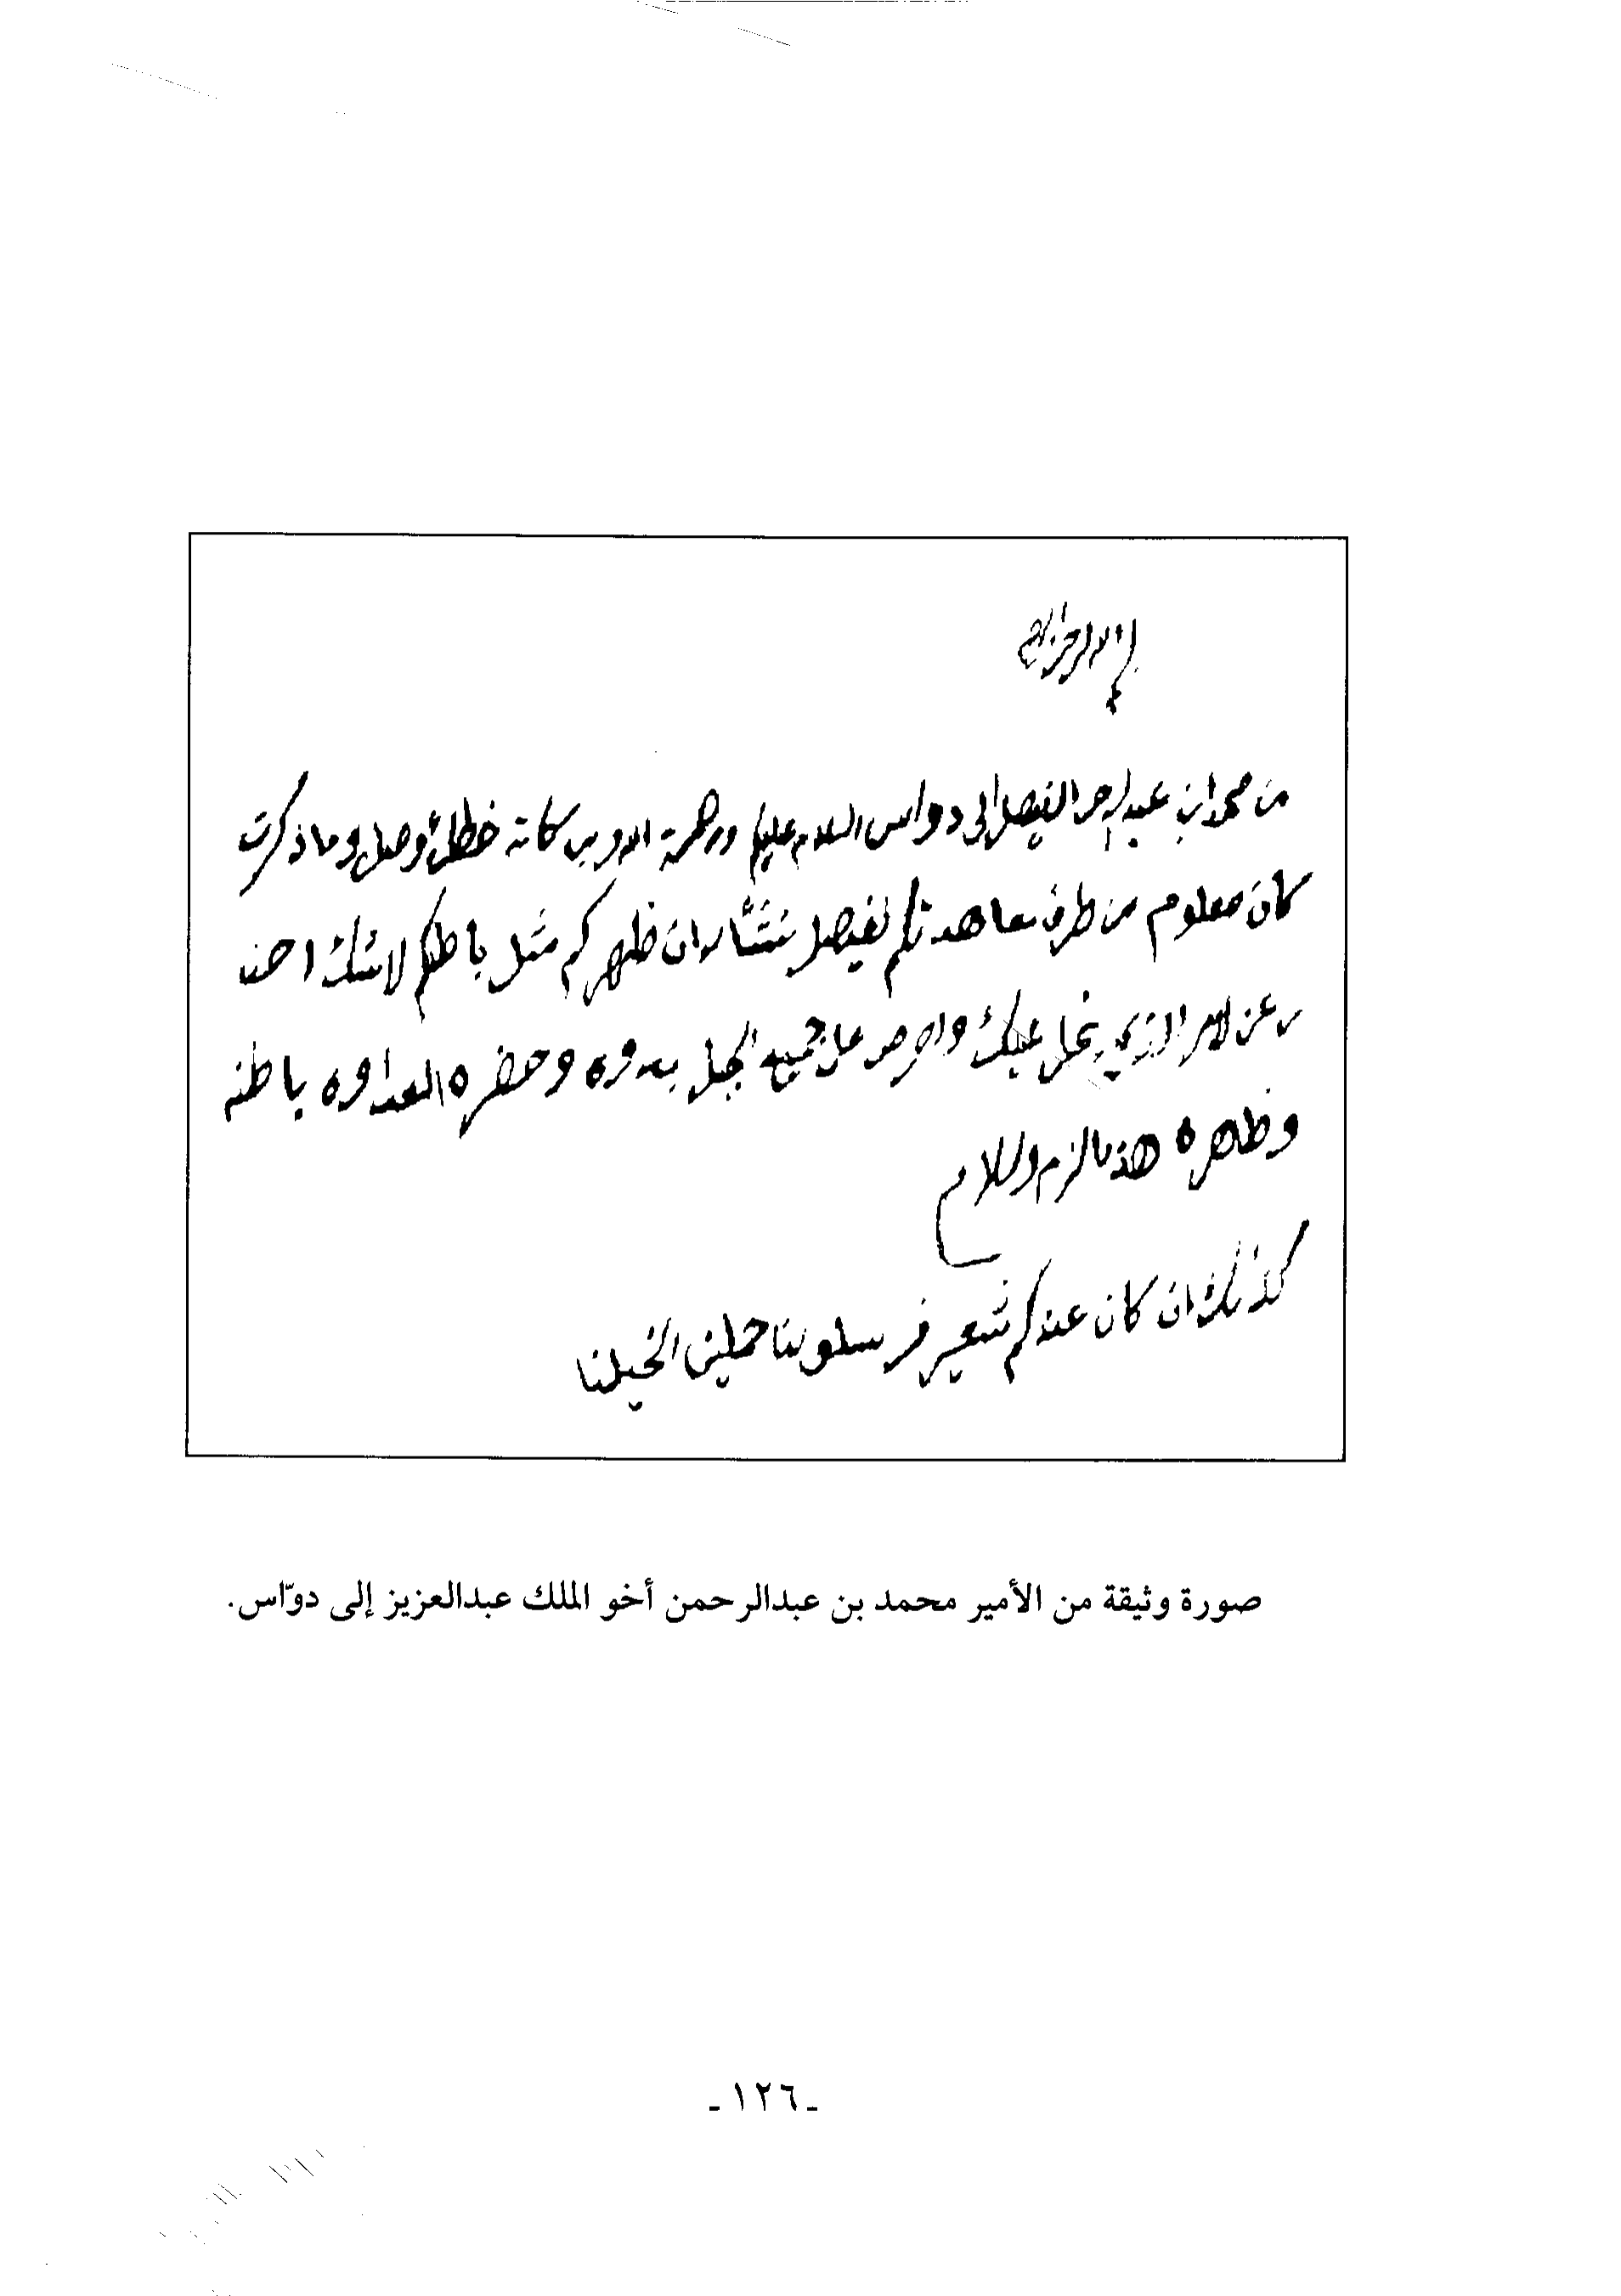 من محمد ابن عبدالرحمن الفيصل الى دواس السلام عليكم ورحمة الله وبركاته خطك وصل وما ذكرت
كان معلوم من طرف معاهدتكم لفيصل ان ظهركم مثل باطنكم لا شك احنا
عن الامر الذي يخل عليك واحرص على جميع بدوه وحضره العداوه باطنه
وظاهره هذا مالزم والسلام
كذلك ان كان عندكم شعير فرسلو لنا حملين الخيلنا
صورة وثيقة من الأمير محمد بن عبدالرحمن أخو الملك عبدالعزيز إلى دوّاس.
-١٢٦-